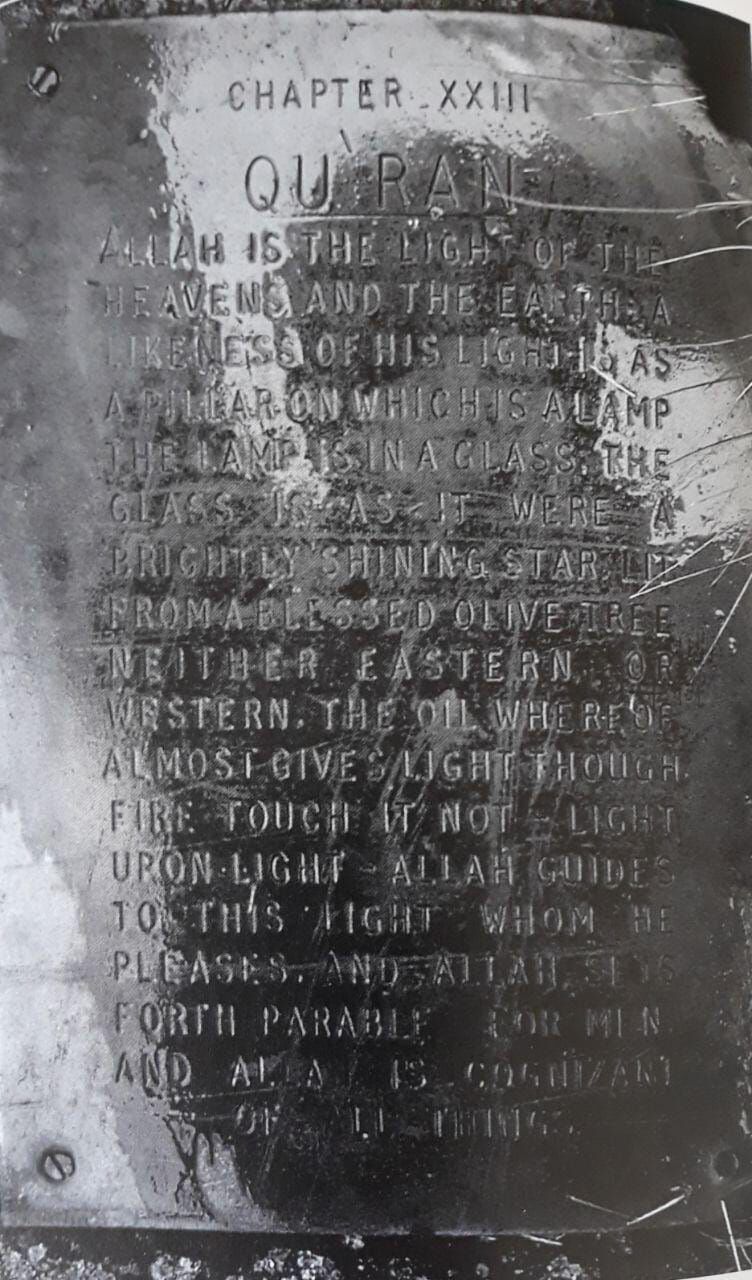 CHAPTER XXIII
QU'RAN
ALLAH IS THE LIGHT OF THE
HEAVENS AND THE EARTH: A
LIKENESS OF HIS LIGHT IS AS
A PILLAR ON WHICH IS A LAMP
THE LAMP IS IN A GLASS, THE
GLASS IS AS IT WERE A
BRIGHTLY SHINING STAR, LIT
FROM A BLESSED OLIVE TREE
NEITHER EASTERN OR
WESTERN, THE OIL WHERE OF
ALMOST GIVES LIGHT THOUGH
FIRE TOUCH IT NOT - LIGHT
UPON LIGHT - ALLAH GUIDES
TO THIS LIGHT WHOM HE
PLEASES, AND ALLAH SETS
FORTH PARABLE FOR MEN
AND ALLAH IS COGNIZANT
OF ALL THINGS